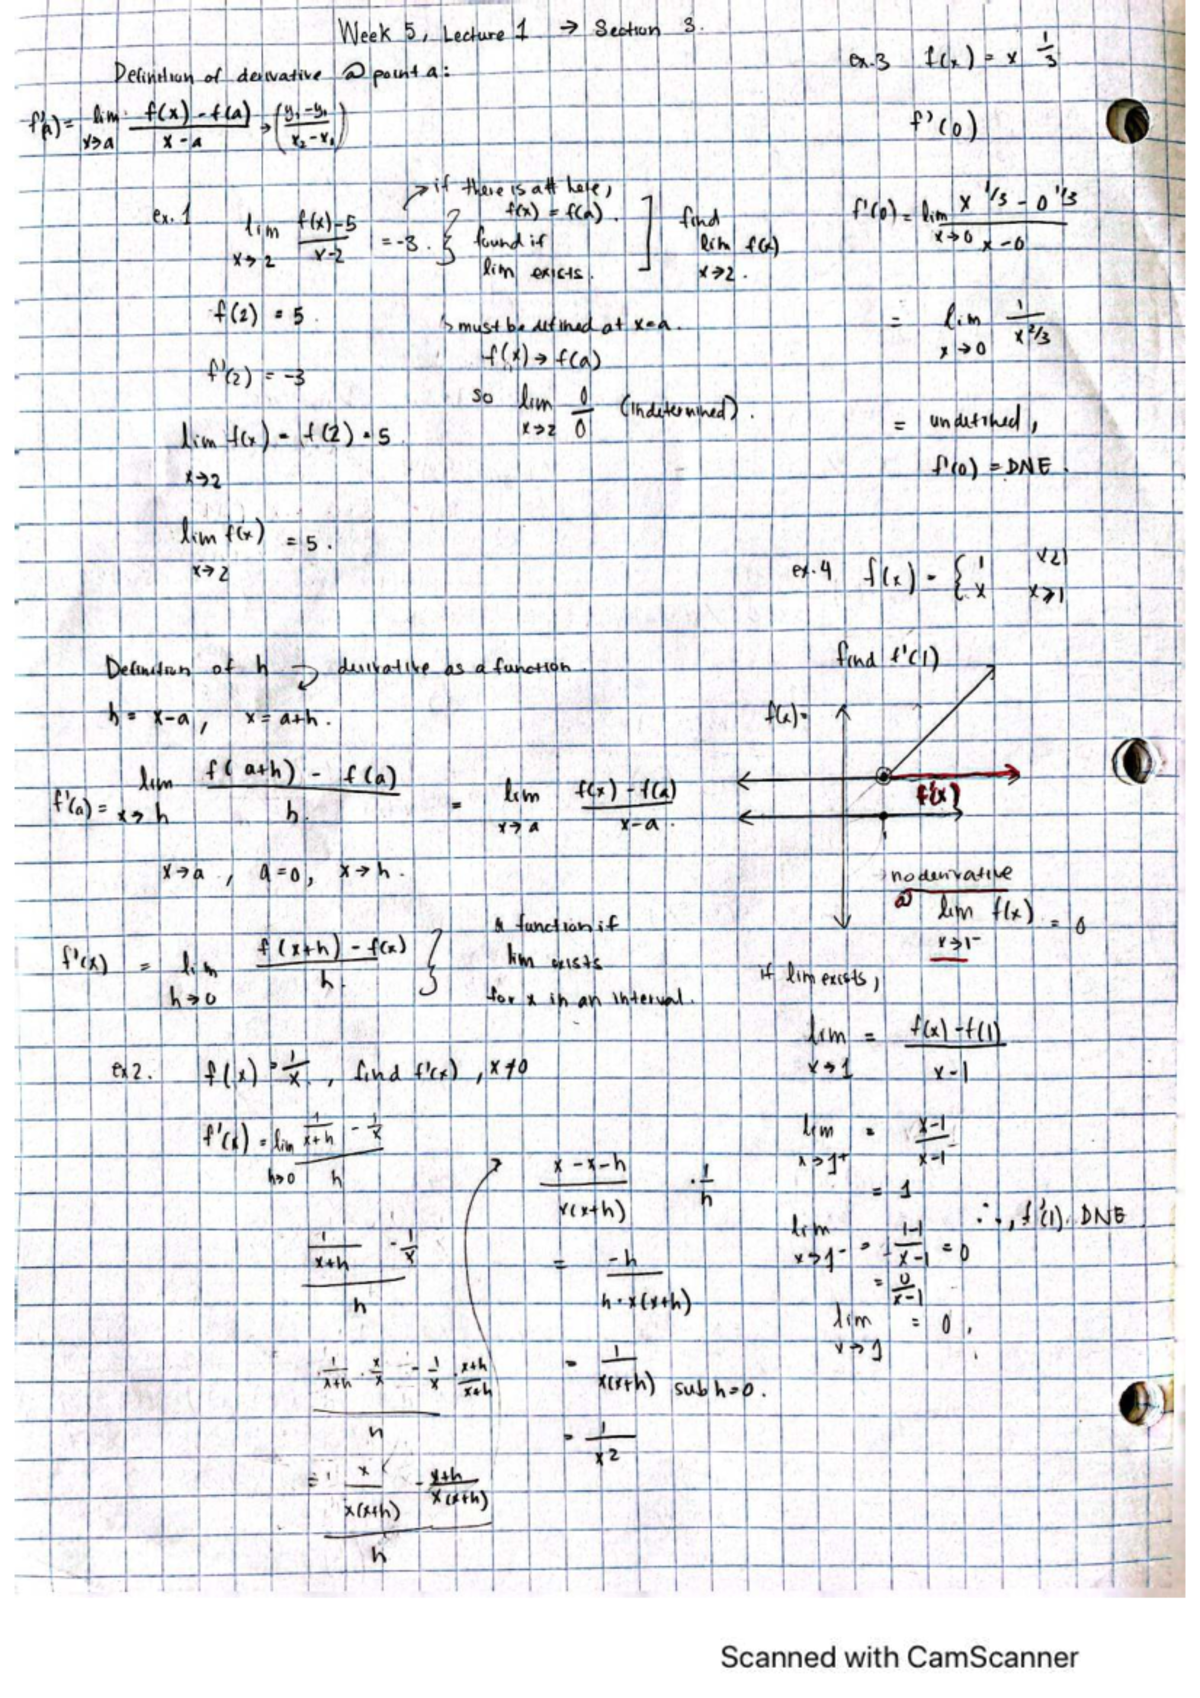 Week 5, Lecture 1 → Section 3.
Definition of derivative @ point a:
f'(a) = lim x→a f(x) - f(a) / x - a → (y₁ - y₁ / x₂ - x₁)
ex. 1 lim x→2 f(x) - 5 / x - 2 = -3.
→ if there is a # here,
f(x) = f(a).
found if
lim exists.
find
lim f(x)
x→2.
f(2) = 5.
f'(2) = -3
lim f(x) = f(2) = 5
x→2
lim f(x) = 5.
x→2
↳ must be defined at x=a.
f(x) → f(a)
so lim x→2 0/0 (indetermined).
Definition of h → derivative as a function.
h = x-a, x = a+h.
f'(a) = lim x→h f(a+h) - f(a) / h. = lim x→a f(x) - f(a) / x-a.
x→a, a=0, x→h.
f'(x) = lim h→0 f(x+h) - f(x) / h.
a function if
lim exists
for x in an interval.
ex 2. f(x) = 1/x, find f'(x), x≠0
f'(x) = lim h→0 1/x+h - 1/x / h
1/x+h - 1/x / h
1/x+h · x/x - 1/x · x+h/x+h / h
= x/x(x+h) - x+h/x(x+h) / h
x-x-h / x(x+h) · 1/h
= -h / h·x(x+h)
= 1 / x(x+h) sub h=0.
= 1 / x2
ex. 3 f(x) = x 1/3
f'(0)
f'(0) = lim x→0 x 1/3 - 0 1/3 / x - 0
= lim x→0 1 / x 2/3
= undefined,
f'(0) = DNE.
ex. 4 f(x) = { 1 x<1
x x⩾1
find f'(1)
f(x)=
f'(x)
1
no derivative
@ lim f(x) = 0
x→1⁻
if lim exists,
lim x→1 = f(x) - f(1) / x-1
lim x→1⁺ = x-1 / x-1
= 1
lim x→1⁻ = 1-1 / x-1 = 0
= 0 / x-1
∴, f'(1) DNE
lim x→1 = 0.
Scanned with CamScanner